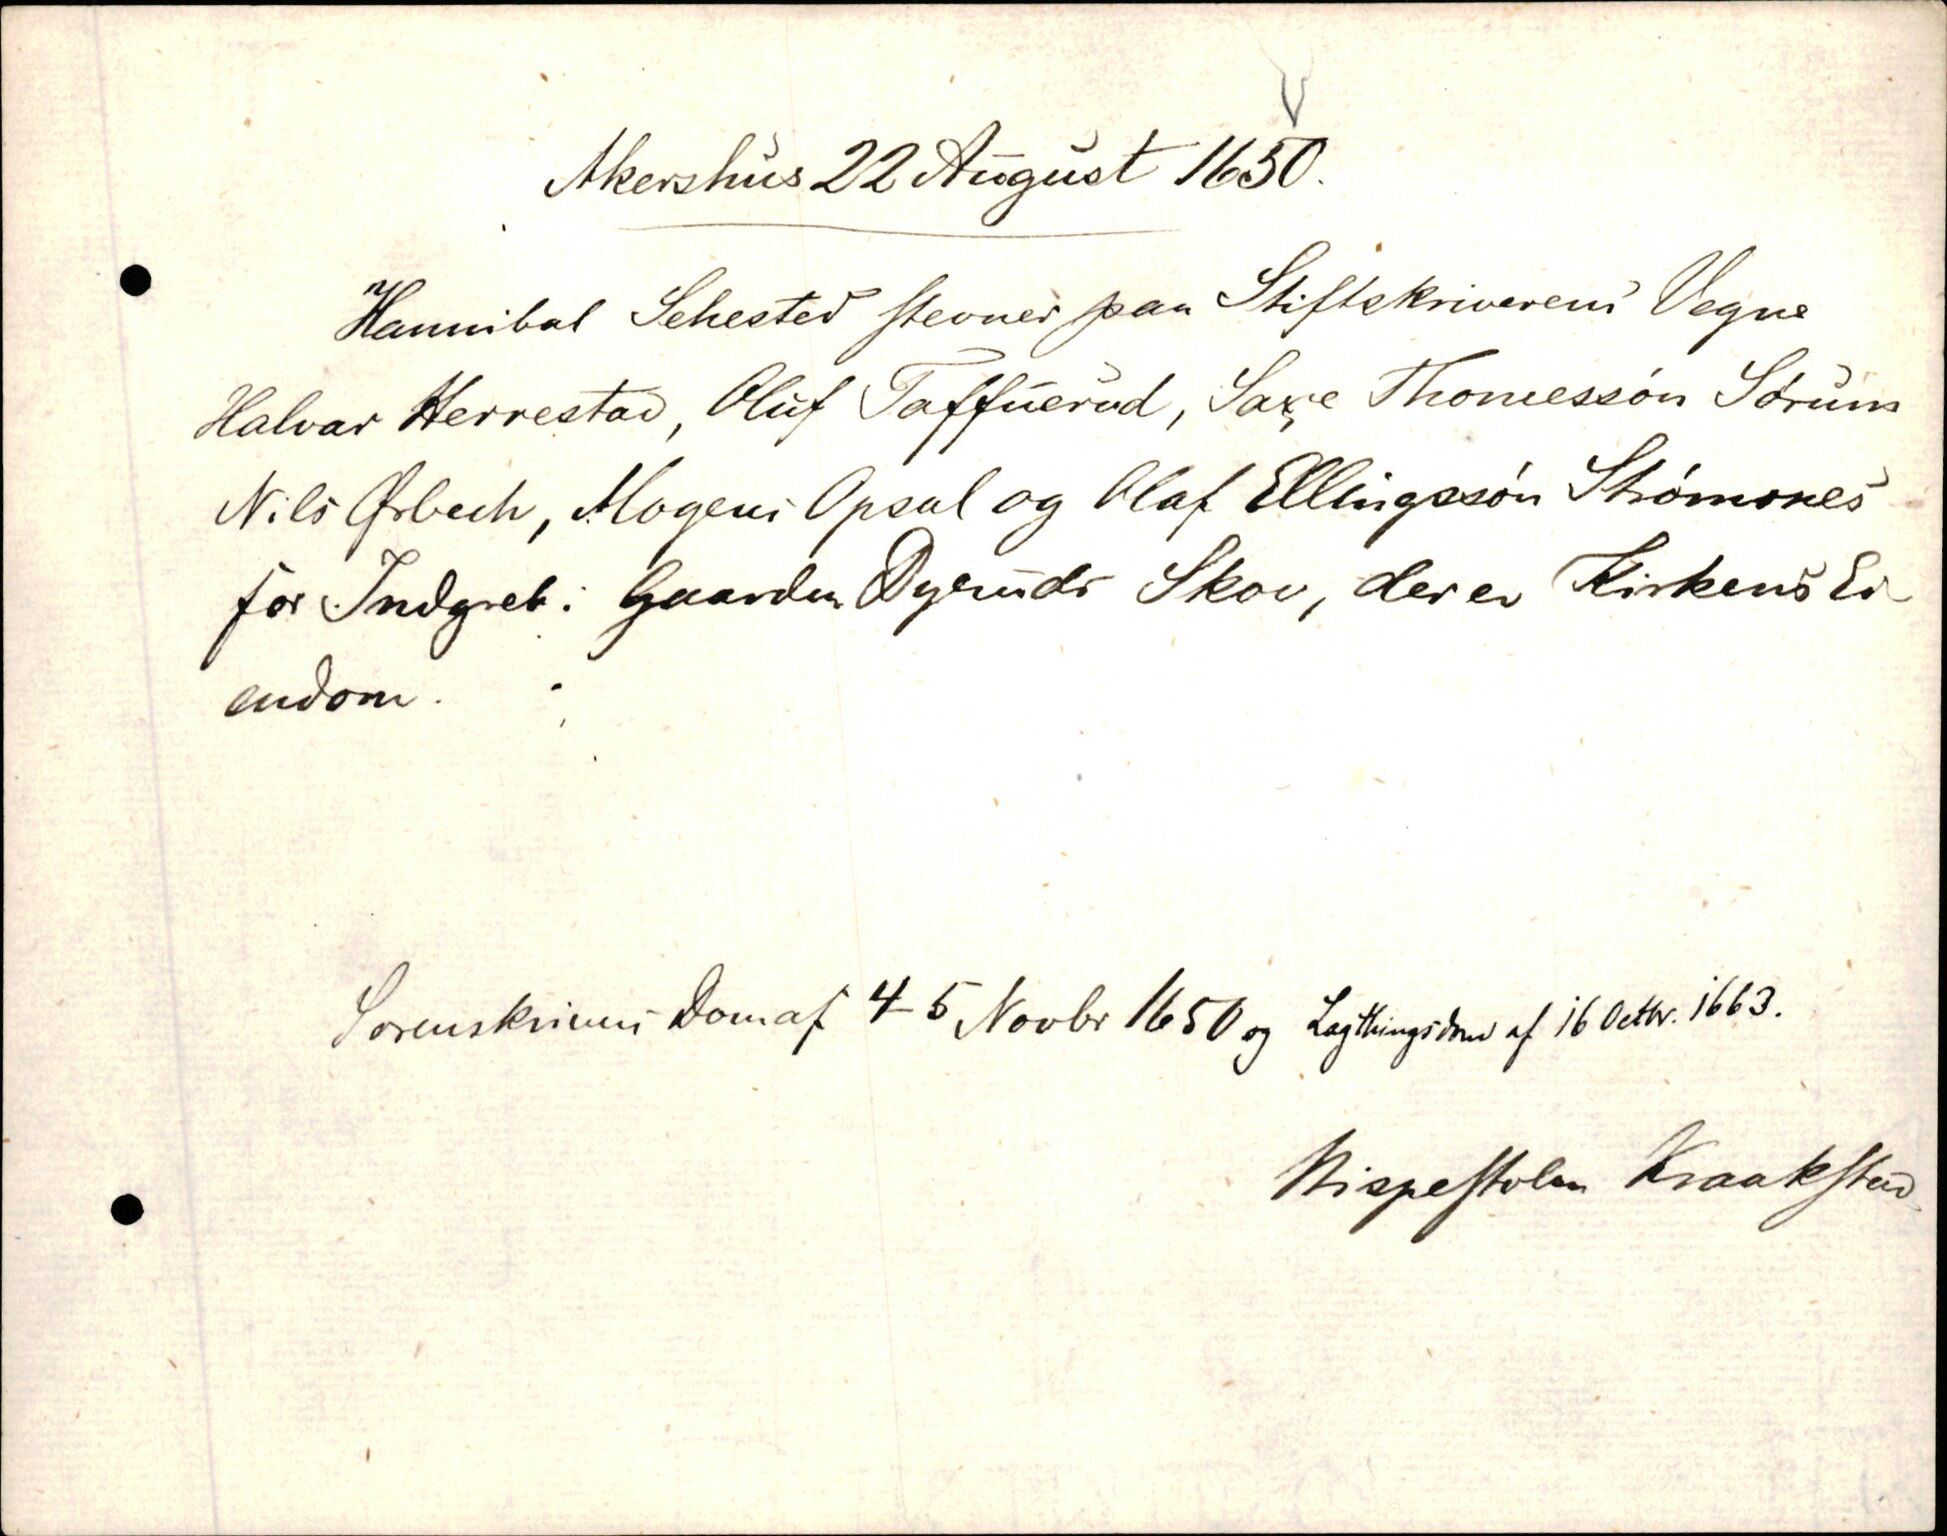 Akershus 22 August 1650.
Hannibal Sehested stevner paa Stiftskriverens Vegne
Halvar Herrestad, Oluf Taffuerud, Saxe Thomessøn Sørum
Nils Ørbech, Mogens Opsal og Olaf Ellingssøn Strømsnes
for Indgreb i Gaarden Dyruds Skov, der er Kirkens Ei
endom.
Sorenskrivers Dom af 4-5 Novbr 1650 og Lagthingsdom af 16 Octbr. 1663.
Bispestolen Kraakstad